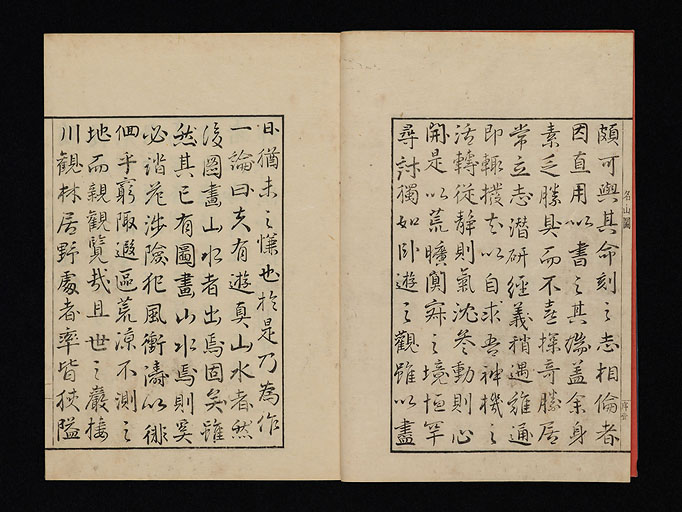 頗可與其命刻之志相倫者
因直用以書之其端蓋余身
素乏勝具而不喜探奇勝居
常立志潛研經義稍遇難通
即輙撥去以自求吾神機之
活轉從静則氣沈参動則心
開是以荒曠闃寂之境恒罕
尋討獨如卧遊之觀雖以盡
名山圖
日猶未之慊也於是乃為作
一論曰夫有遊真山水者然
後圖畫山水者出焉固矣雖
然其已有圖畫山水焉則奚
必諧荒涉險犯風衝濤以徘
徊乎窮陬遐區荒涼不測之
地而親觀覽哉且世之巖棲
川觀林居野處者率皆狹隘